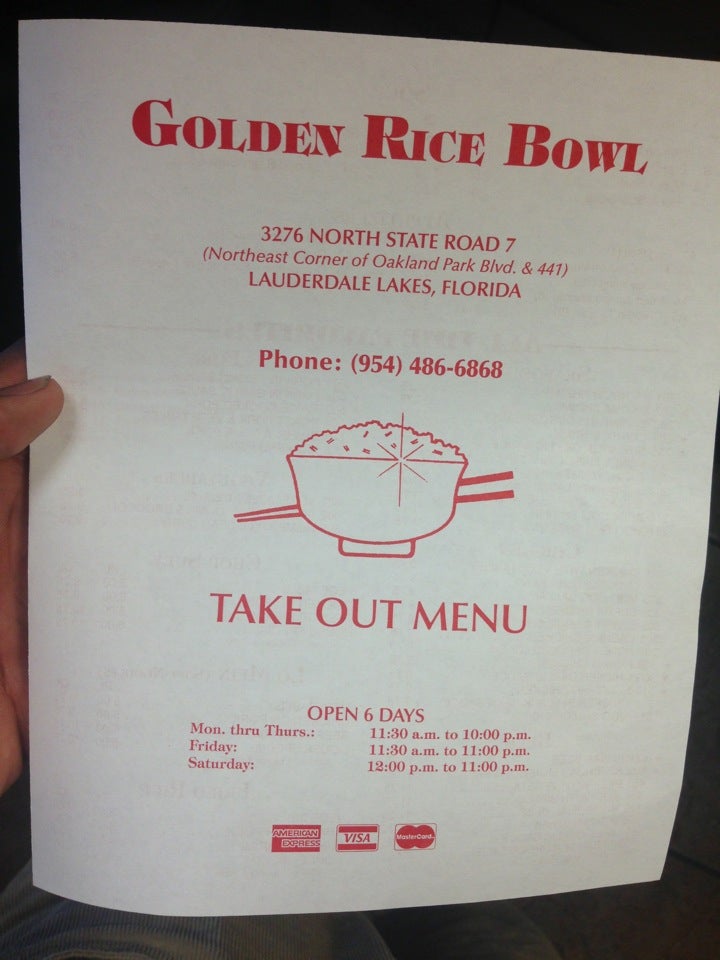 GOLDEN RICE BOWL
3276 NORTH STATE ROAD 7
(Northeast Corner of Oakland Park Blvd. & 441)
LAUDERDALE LAKES, FLORIDA
Phone: (954) 486-6868
TAKE OUT MENU
OPEN 6 DAYS
Mon. thru Thurs.: 11:30 a.m. to 10:00 p.m.
Friday: 11:30 a.m. to 11:00 p.m.
Saturday: 12:00 p.m. to 11:00 p.m.
AMERICAN EXPRESS VISA MasterCard